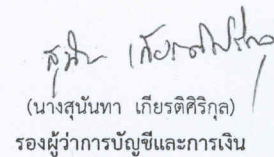 (นางสุนันทา เกียรติศิริกุล)
รองผู้ว่าการบัญชีและการเงิน